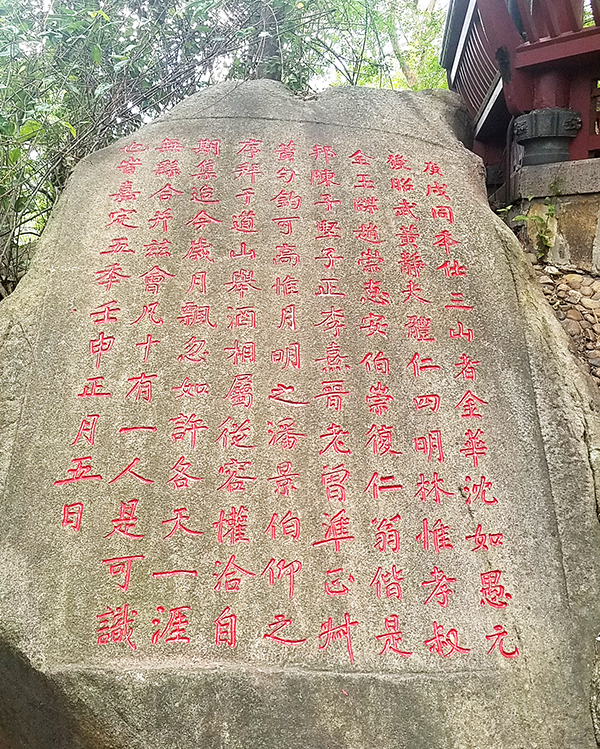 庚戌同年仕三山者金華沈如愚元
發昭武黃靜夫體仁四明林惟孝叔
全玉牒趙崇志安伯崇復仁翁偕是
邦陳子堅子正李熹晉老曾準正艸
黃勻鈞可高惟月明之潘景伯仰之
序拜于道山舉酒相屬從容懽洽自
期集迨今歲月飄忽如許各天一涯
無緜合并茲會凡十有一人是可識
也峕嘉定五年壬申正月五日